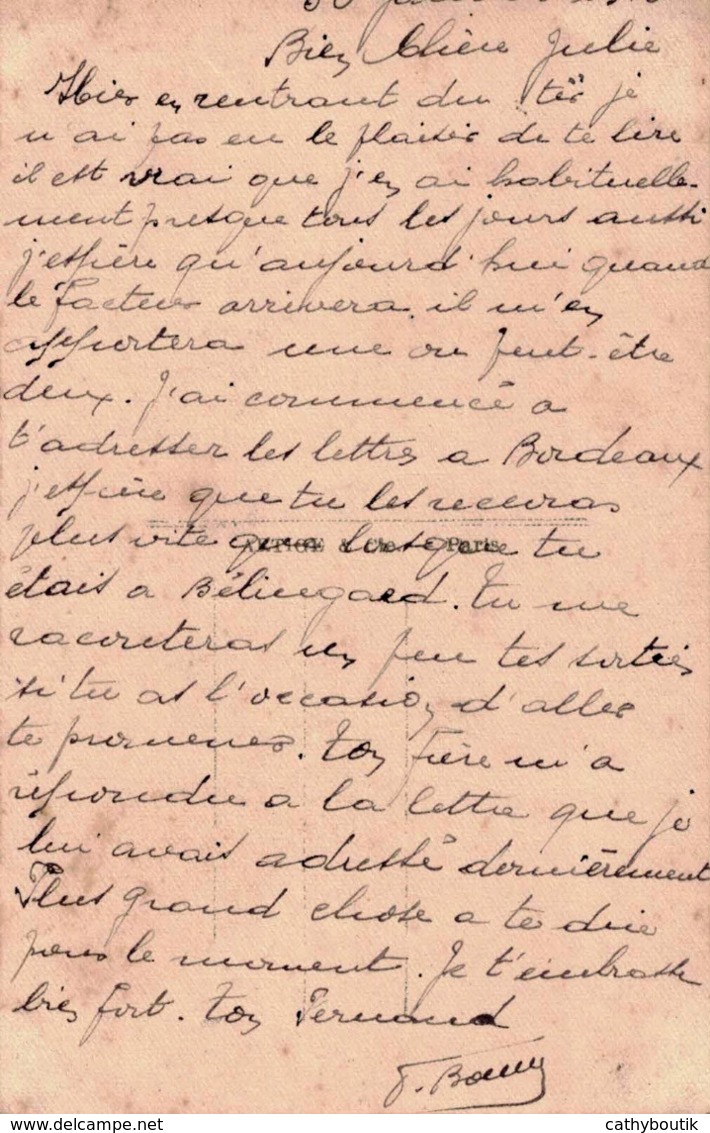 Bien Chère Julie
Hier en rentrant du je
n'ai pas eu le plaisir de te lire
il est vrai que j'en ai habituelle-
ment presque tous les jours aussi
j'espère qu'aujourd'hui quand
le facteur arrivera il m'en
apportera une ou peut-être
deux. J'ai commencé a
t'adresser les lettres a Bordeaux
j'espère que tu les recevras
plus vite que lorsque tu
Paris
étais a Bélingard. Tu me
raconteras un peu tes sorties
si tu as l'occasion d'aller
te promener. Ton frère m'a
répondu a la lettre que je
lui avais adressé dernièrement
Plus grand chose a te dire
pour le moment. Je t'embrasse
bien fort. Ton Fernand
cathyboutik